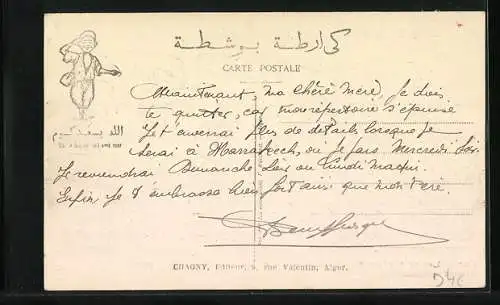 كارطة بوسطة
CARTE POSTALE
Maintenant, ma Chère Mère, Je dois
te quitter, car mon répertoire s'épuise
Je t'enverrai plus de détails lorsque je
serai à Marrakech, où je pars Mercredi soir
Je reviendrai Dimanche soir ou lundi matin
Enfin, je t'embrasse bien fort ainsi que mon Père.
الله يسعد
CHAGNY, Editeur, rue Valentin, Alger.
D4c